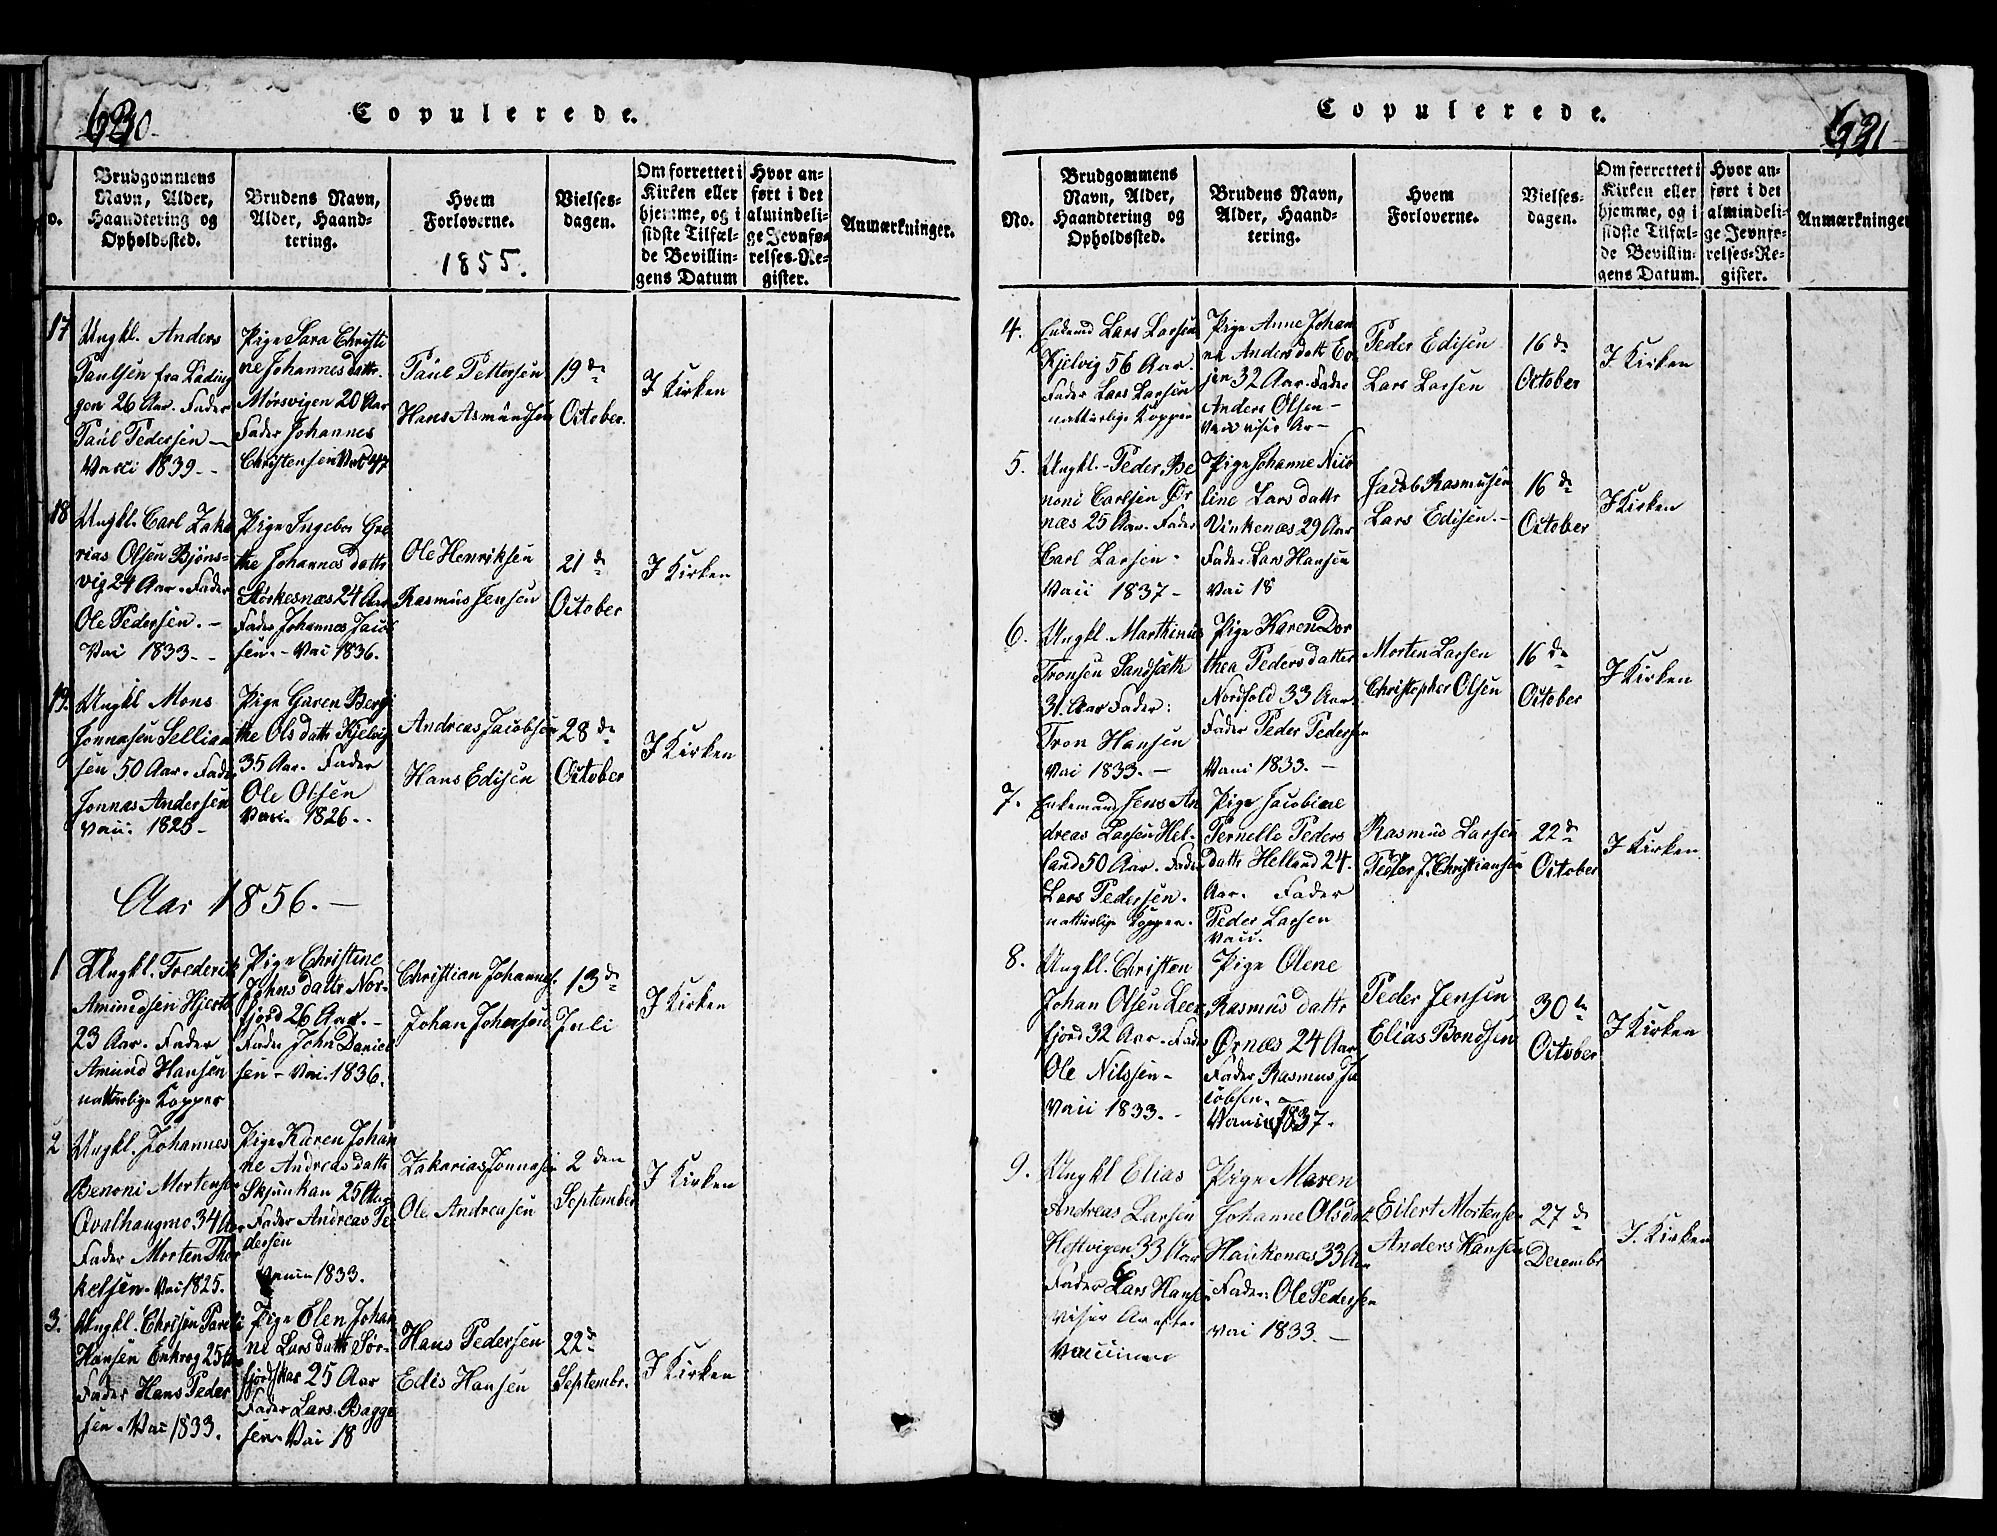 Copulerede.
No.
Brudgommens Navn, Alder, Haandtering og Opholdssted.
Brudens Navn, Alder, Haandtering.
Hvem Forloverne.
1855.
Vielsesdagen.
Om forrettet i Kirken eller hjemme, og i sidste Tilfælde Bevillingens Datum
Hvor anført i det almindelige Jevnførelses-Register.
Anmærkninger.
17
Ungkl. Anders
Paulsen fra Lødin
gen 26 Aar. Fader
Paul Pedersen
Vacci 1839.
Pige Sara Christi
ne Johannesdattr
Mørsvigen 20 Aar
Fader Johannes
Christensen Vac 47
Paul Pettersen
Hans Asmundsen
19de
October.
I Kirken
18
Ungkl. Carl Zaka
rias Olsen Bjøns-
vig 24 Aar. Fader
Ole Pedersen.
Vac 1833.
Pige Ingebor Gre
the Johannesdattr
Storkesnæs 24 Aar
Fader Johannes Jacob
sen. Vac 1836.
Ole Henriksen
Rasmus Jensen
21de
October
I Kirken
19.
Ungkl Mons
Jonnasen Sellian
sen 50 Aar. Fader
Jonnas Andersen
Vacc. 1825
Pige Garen Berg
the Olsdattr Kjelvig
35 Aar. Fader
Ole Olsen
Vacc. 1826.
Andreas Jacobsen
Hans Edisen
28de
October
I Kirken
Aar 1856.
1
Ungkl. Frederik
Amundsen
23 Aar. Fader
Amund Hansen
natturlige Kopper
Pige Christine
Johnsdattr Nor-
fjord 26 Aar.
Fader John Daniel
sen Vac. 1836.
Christian Johannes.
Johan Johansen
13de
Juli
I Kirken
2
Ungkl. Johannes
Benoni Mortensen
Qvalhaugmo 34 Aar
Fader Morten Thor
kelsen. Vac 1825.
Pige Karen Johan
ne Andreasdattr
Skjunkan 25 Aar
Fader Andreas Pe
dersen
Vaccin 1833.
Zakarias Jonnasen
Ole Andreasen
2den
September
I Kirken
3.
Ungkl. Chrisen Pareli
Hansen Enkrog 25 Aar
Fader Hans Peder
sen. Vac 1833.
Pige Elen Johan
ne Larsdattr Sør-
fjordskar 25 Aar
Fader Lars Bagge
sen Vac 18
Hans Pedersen
Edis Hansen
22de
Septembr.
I Kirken
Copulerede.
No.
Brudgommens Navn, Alder, Haandtering og Opholdssted.
Brudens Navn, Alder, Haandtering.
Hvem Forloverne.
Vielsesdagen.
Om forrettet i Kirken eller hjemme, og i sidste Tilfælde Bevillingens Datum.
Hvor anført i det almindelige Jevnførelses-Register.
Anmærkninger
4.
Enkemd Lars Larsen
Kjelvig 56 Aar.
Fader Lars Larsen
natturlige Kopper
Pige Anne Johan
ne Andersdattr Ev
jen 32 Aar. Fader
Anders Olsen
Peder Edisen
Lars Larsen
16de
October
I Kirken
5.
Ungkl. Peder Be
noni Carlsen Ør
næs 25 Aar. Fader
Carl Larsen
Vacc 1837
Pige Johanne Nico
line Larsdattr
Vinkenæs 29 Aar
Fader Lars Hansen
Vac 18
Jacob Rasmusen
Lars Edisen.
16de
October
I Kirken
6.
Ungkl. Marthinus
Tronsen Sandsæth
31. Aar Fader:
Tron Hansen
Vac 1833.
Pige Karen Dor
thea Pedersdatter
Nordfold 33 Aar.
Fader Peder Pedersen
Vacc 1833.
Morten Larsen
Christopher Olsen
16de
October
I Kirken
7.
Enkemand Jens An
dreas Larsen Hel-
land 50 Aar. Fader
Lars Pedersen.
natturlige Kopper.
Pige Jacobine
Pernelle Peders
dattr Helland 24
Aar. Fader
Peder Larsen
Vacc.
Rasmus Larsen
Peder J. Christiansen
22de
October
I Kirken
8.
Ungkl. Christen
Johan Olsen Leer
fjord 32 Aar. Fader
Ole Nilssen
Vacc 1833.
Pige Olene
Rasmusdattr
Ørnæs 24 Aar
Fader Rasmus Ja
cobsen.
1837.
Peder Jensen
Elias Bondsen
30te
October
I Kirken
9.
Ungkl Elias
Andreas Larsen
Hestvigen 33 Aar
Fader Lars Hansen
viser Ar efter
Vaccinen
Pige Maren
Johanne Olsdatr
Haukenæs 33 Aar
Fader: Ole Pedersen
Vac 1833.
Eilert Mortensen
Anders Hansen
27de
Decembr
I. Kirken